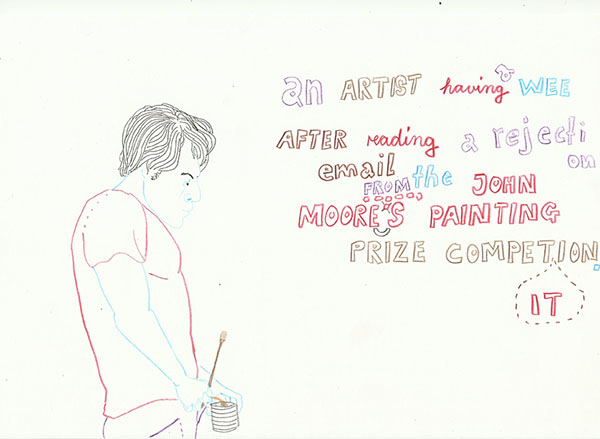 an ARTIST having a WEE
AFTER reading a rejecti
on
email FROM the JOHN
MOORE'S PAINTING
PRIZE COMPETION.
IT